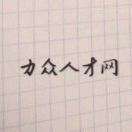 力众人才网